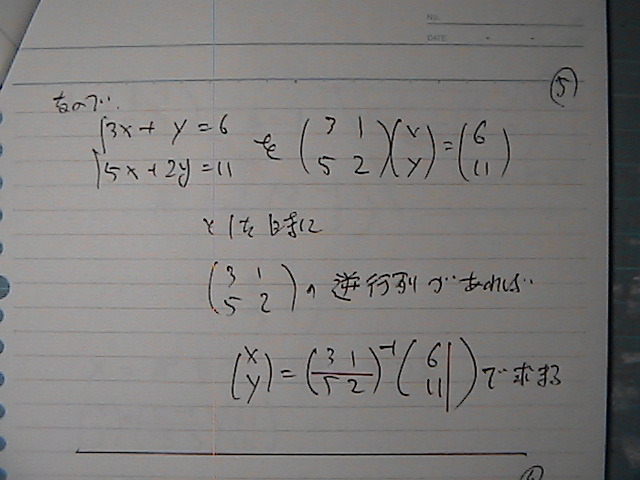 No.
DATE
⑤
なので、
{3x + y = 6
{5x + 2y = 11 を (3 1 / 5 2)(x / y) = (6 / 11)
とした時に
(3 1 / 5 2)の逆行列があれば
(x / y) = (3 1 / 5 2)⁻¹(6 / 11)で求まる